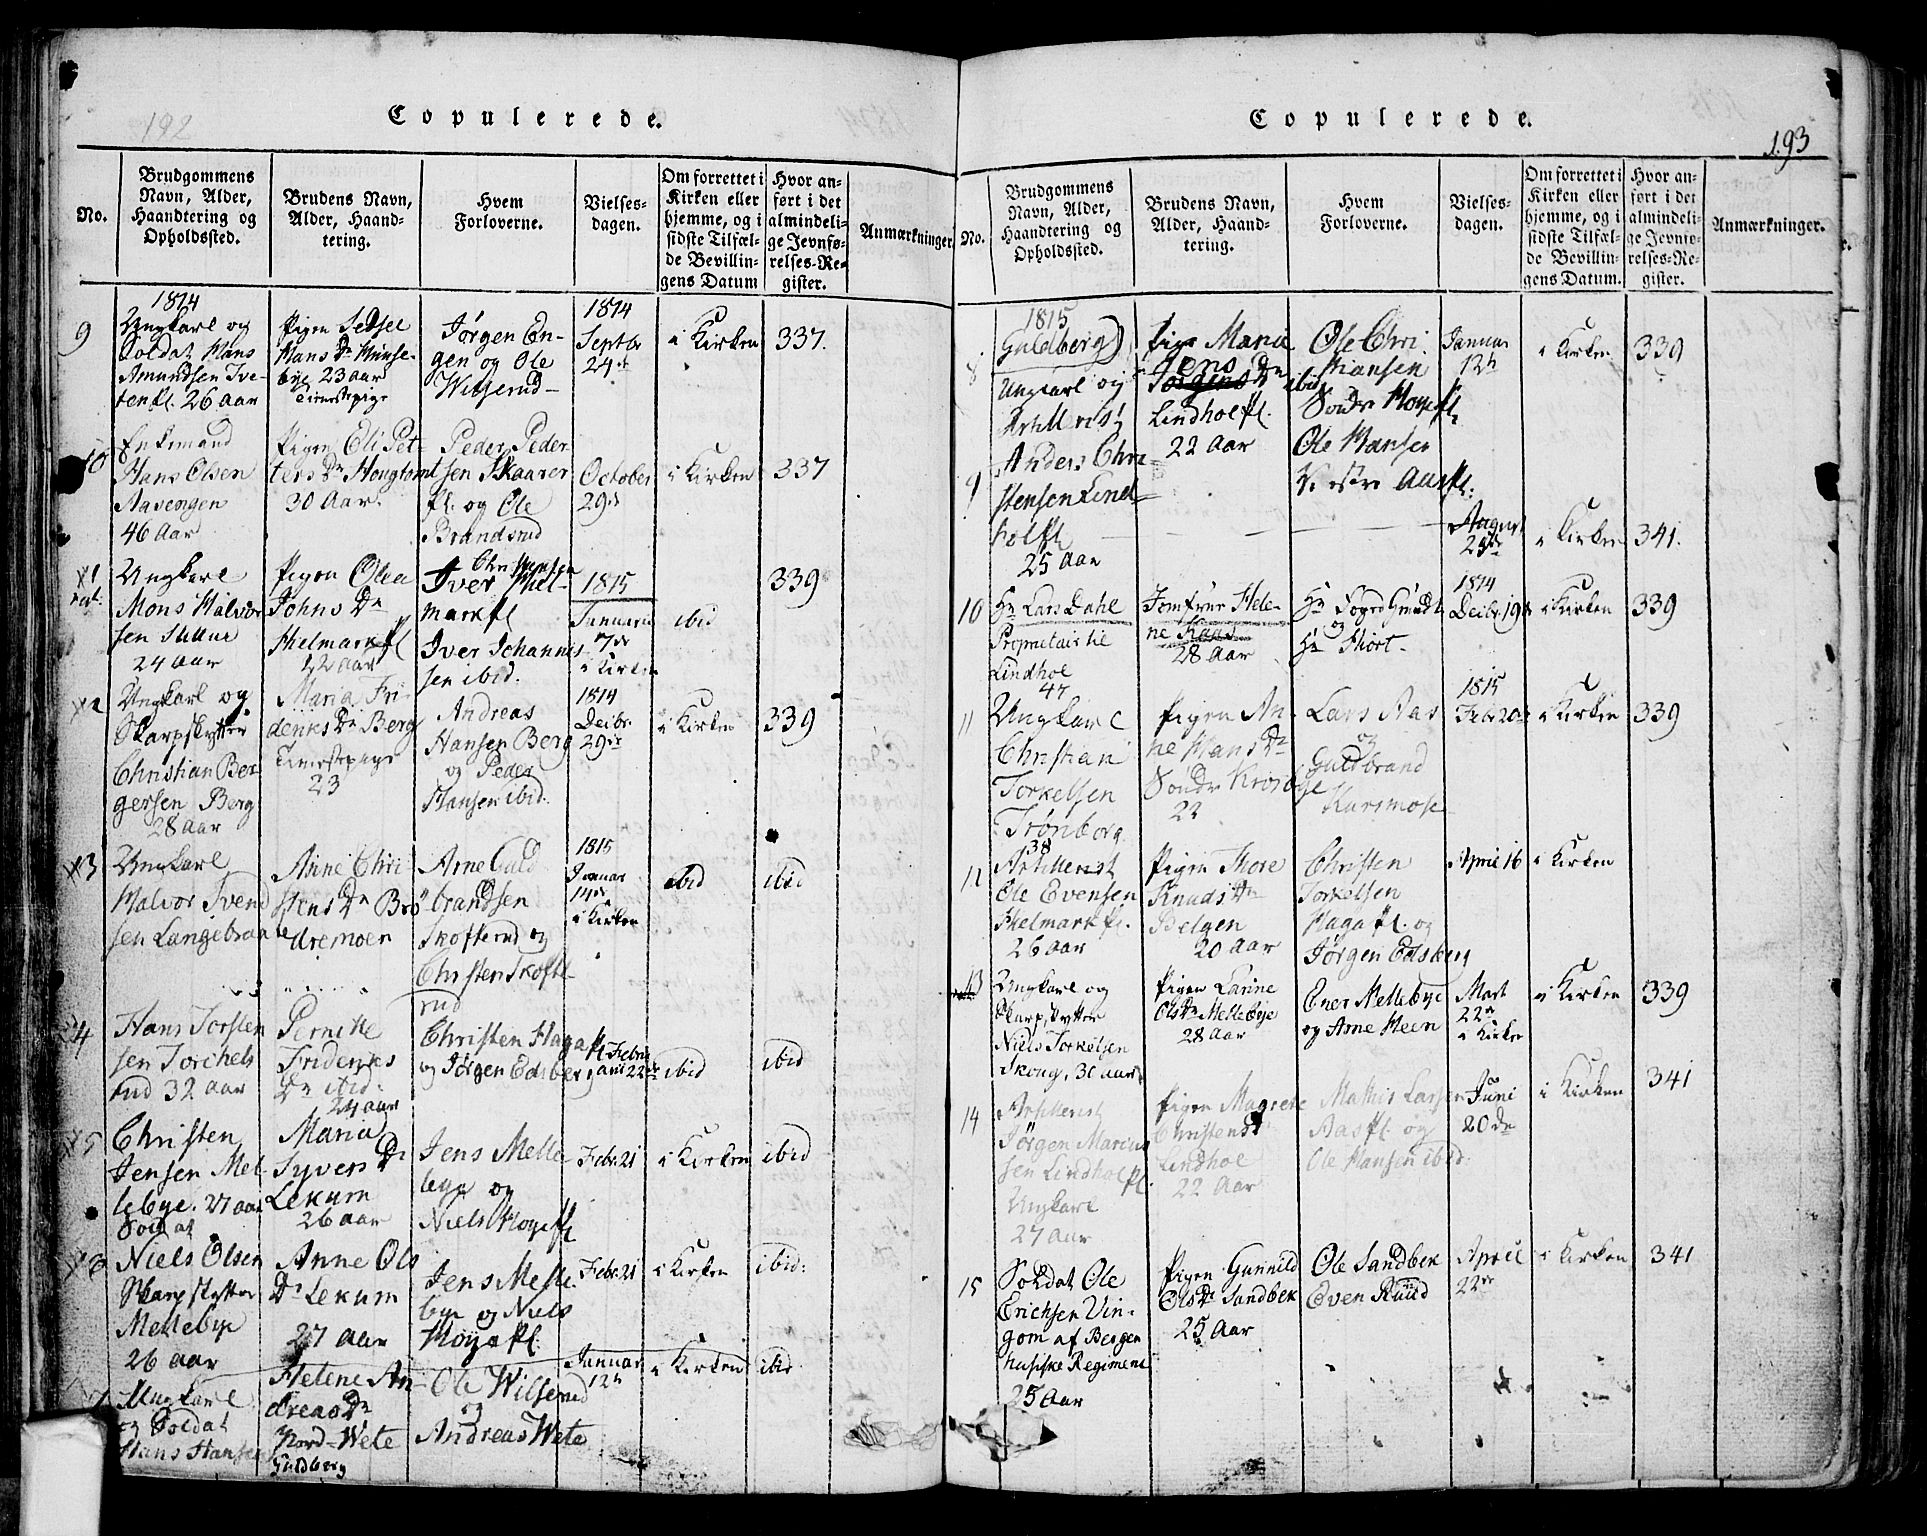 192
Copulerede.
No.
Brudgommens
Navn, Alder,
Haandtering og
Opholdssted.
Brudens Navn,
Alder, Haand-
tering.
Hvem
Forloverne.
Vielses-
dagen.
Om forrettet i
Kirken eller
hjemme, og i
sidste Tilfæl-
de Bevillin-
gens Datum
Hvor an-
ført i det
almindeli-
ge Jevnfø-
relses-Re-
gister.
Anmærkninger
1814
9
Ungkarl og
Soldat Hans
Amundsen Tve-
tenpl. 26 aar
Pigen Sedsel
Hans Dr Hunse-
bye 23 aar
Tienestepige
Jørgen En-
gen og Ole
Wilserud
1814
Septbr
24de
i Kirken
337.
10
Enkemand
Hans Olsen
Aasengen
46 Aar
Pigen Eli Pet-
ters Dr Hougto
30 Aar
Peder Peder
sen Skaarer
pl. og Ole
Brandsrud
October
29de
i Kirken
337
11
Ungkarl
Mons Halvor
sen
24 aar
Pigen Olea
Johns Dr
Helmarkpl
22 aar
Christiansen
Iver Hel-
markpl
Iver Johannes
sen ibid.
1815
Januari
7de
i Kirken
ibid
339
12
Ungkarl og
Skarpskytter
Christian Ber
gersen Berg
28 aar
Maria Fri-
deriks Dr Berg
Tienestepige
23
Andreas
Hansen Berg
og Peder
Hansen ibid.
1814
Decbr.
29de
i Kirken
339
13
Ungkarl
Halvor Svend
sen Langebraate
Anne Chri
stens Dr Brö
dremoen
Arne Guld
brandsen
Skofterud og
Christen Skofte
rud
1815
Januar
14de
i Kirken
ibid
ibid
14
Hans Torsten
sen Torchels
rud 32 aar
Pernille
Frideriks
Dr ibid.
24 aar
Christen Haga pl
og Jørgen Edsberg
Febru
arii 22de
ibid
ibid
15
Christen
Jensen Mel-
lebye. 27 aar
Soldat
Maria
Syvers Dr
Lekum
26 aar
Jens Melle
bye og
Niels Hoyepl
Febr. 21
i Kirken
ibid
16
Niels Olsen
Skarpskytter
Mellebye
26 aar
Anne Ols
Dr Lekum
27 aar
Jens Melle
bye og Niels
Hoyepl.
Febr. 21
i Kirken
ibid:
Ungkarl
og Soldat
Hans Hansen
Helene An-
dreas Dr
Nord-Wete
Guldberg
Ole Wilserud
og
Andreas Wete
Januar
12te
i Kirken
ibid
193
Copulerede.
No.
Brudgommens
Navn, Alder,
Haandtering og
Opholdssted.
Brudens Navn,
Alder, Haand-
tering.
Hvem
Forloverne.
Vielses-
dagen.
Om forrettet i
Kirken eller
hjemme, og i
sidste Tilfæl-
de Bevillin-
gens Datum.
Hvor an-
ført i det
almindeli-
ge Jevnfø-
relses-Re-
gister.
Anmærkninger.
1815
Guldberg)
8
Ungkarl og
Artillerist
9
Anders Chri-
stensen Lind-
holpl
25 aar
Pige Marie
Jens
Jørgens Dr ibid
Lindholpl.
22 Aar
Ole Chri
stiansen
Søndr Hoyepl.
Ole Hansen
Vestre Aaspl.
Januar
12te
i Kirken
339
August
i Kirken
341.
10
Hr Lars Dahl
Proprietair til
Lindhol
47
Jomfrue Hele-
ne Raas
28 Aar
Hr Foged Gmudt
og
Hr Hiort
1814
Decbr. 19de
i Kirken
339
11
Ungkarl
Christian
Torkelsen
Trönborg
38
Pigen An-
ne Hans Dr
Söndr Krosbye
22
Lars Aas
og
Guldbrand
Kursmose
1815
Febr. 20de
i Kirken
339
12
Artillerist
Ole Evensen
Helmarkpl.
26 aar
Pigen Thore
Knuds Dr
Belgen
20 aar
Christen
Torkelsen
Haga pl. og
Jørgen Edsberg
April 16
i Kirken
13
Ungkarl og
Skarpskytter
Niels Torkelsen
Skoug, 30 aar
Pigen Karine
Ols Dr Mellebye
28 Aar
Ener Mellebye
og Arne Heen
Mart
22de
i Kirken
i Kirken
339
14
Artillerist
Jørgen Marius
sen Lindholpl.
Ungkarl
27 aar
Pigen Magrete
Christens Dr
Lindhol
22 Aar
Mathis Larsen
Aaspl. og
Ole Hansen ibid.
Juni
20de
i Kirken
341
15
Soldat Ole
Erichsen Vin-
gom af Bergen
husiske Regiment
25 Aar
Pigen Gunnild
Ols Dr Sandbek
25 Aar
Ole Sandbek
Even Ruud
April
22de
i Kirken
341